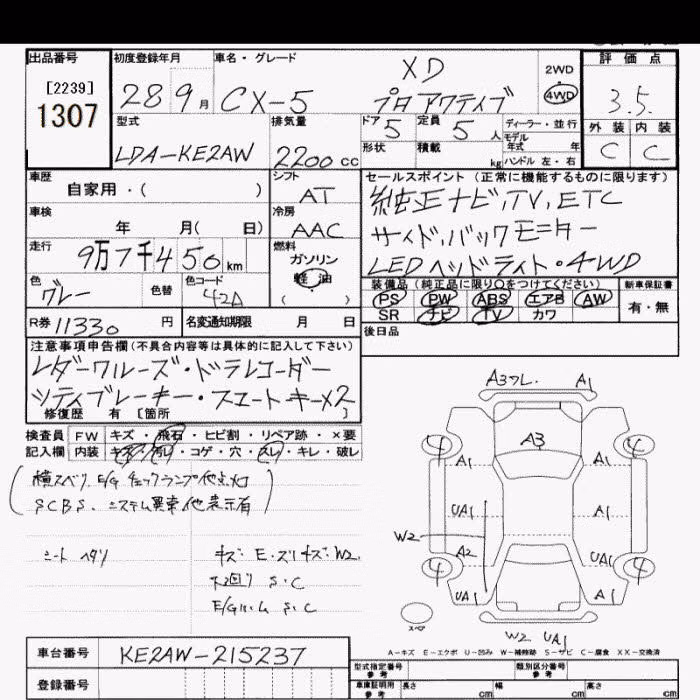 出品番号 初度登録年月 車名・グレード XD 2WD 評価点
[2239] 28 9月 CX-5 プロアクティブ 4WD 3.5
1307 型式 排気量 ドア 定員 ディーラー・並行 外装 内装
LDA-KE2AW 2200cc 5 5人 モデル年式 年 C C
形状 積載 kg ハンドル 左・右
車歴 自家用・( ) シフト AT セールスポイント (正常に機能するものに限ります)
純正ナビ,TV,ETC
車検 年 月( 日) 冷房 AAC サイド,バックモニター
走行 9万7千450km 燃料 ガソリン LEDヘッドライト・4WD
軽油
( )
色 グレー 色替 色コード 42A 装備品 (純正品に限り○をつけてください) 新車保証書
PS PW ABS エアB AW 有・無
SR ナビ TV カワ
R券 11330円 名変通知期限 月 日 後日品
注意事項申告欄(不具合内容等は具体的に記入して下さい)
レダークルーズ・ドラレコーダー
シティブレーキ・スマートキー×2
修復歴 有 [箇所 ]
検査員 FW キズ・飛石・ヒビ割・リペア跡・×要
記入欄 内装 キズ・汚レ・コゲ・穴・スレ・キレ・破レ
横スベリ E/Gチェックランプ他点灯
SCBS、システム異常他表示有
シート ヘタリ キズ・E・ズリキズ・W2
下廻り S・C
E/Gルーム S・C
A3フレ. A1
4 A3 4
A1 A1
UA1 A1
W2 A2 UA1
4 4
UA1 A1
スペア W2 UA1
A-キズ E-エクボ U-凹み W-補修跡 S-サビ C-腐食 XX-交換済
車台番号 KE2AW-215237
型式指定番号 参考 類別区分番号 参考
登録番号 車庫証明用 参考 長さ cm 幅 cm 高さ cm